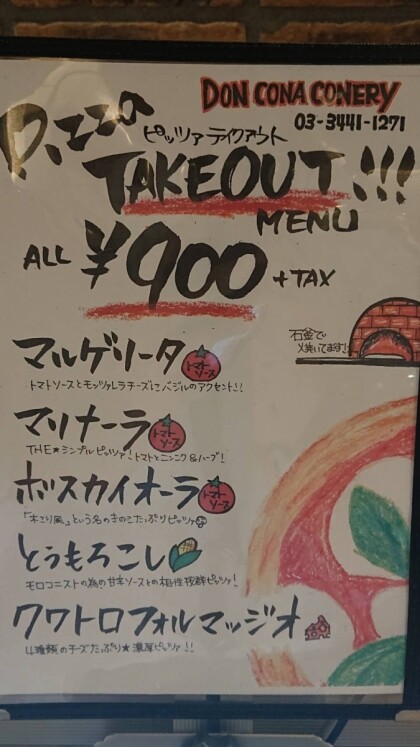 DON CONA CONERY
03-3441-1271
Pizza
ピッツァ テイクアウト
TAKEOUT!!!
MENU
ALL ¥900 +TAX
石釜で
焼いてます!
マルゲリータ
トマトソース
トマトソースとモッツァレラチーズにバジルのアクセント!!
マリナーラ
トマトソース
THE★シンプルピッツァ!トマトとニンニク&ハーブ!
ボスカイオーラ
トマトソース
「木こり風」という名のきのこたっぷりピッツァ
とうもろこし
モロコニストの為の甘辛ソースとの相性抜群ピッツァ!
クワトロフォルマッジオ
4種類のチーズたっぷり★濃厚ピッツァ!!